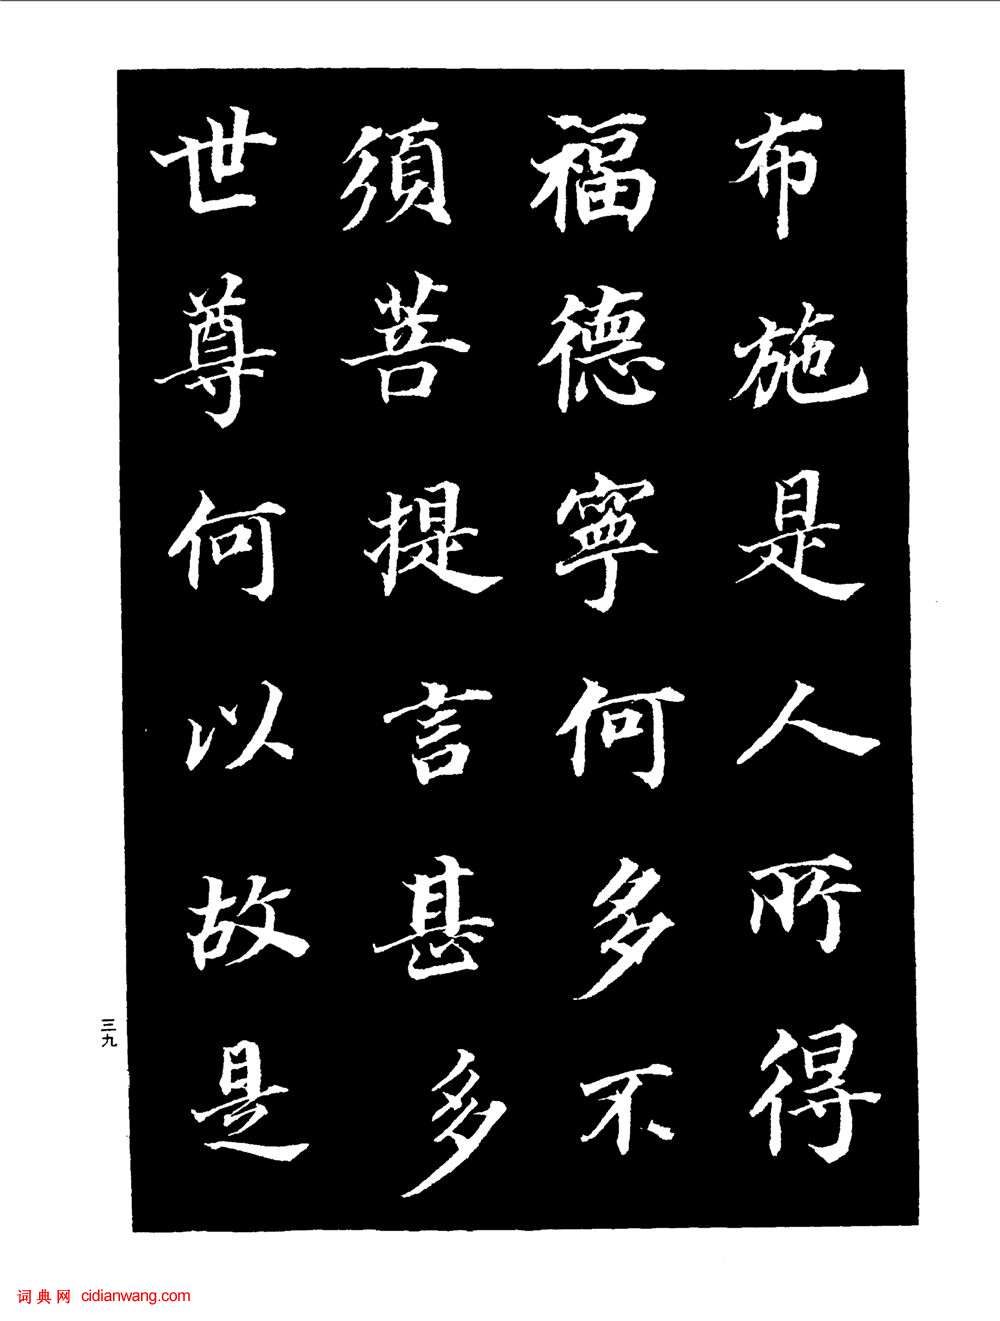 布施是人所得
福德寧何多不
須菩提言甚多
世尊何以故是
三九
词典网 cidianwang.com